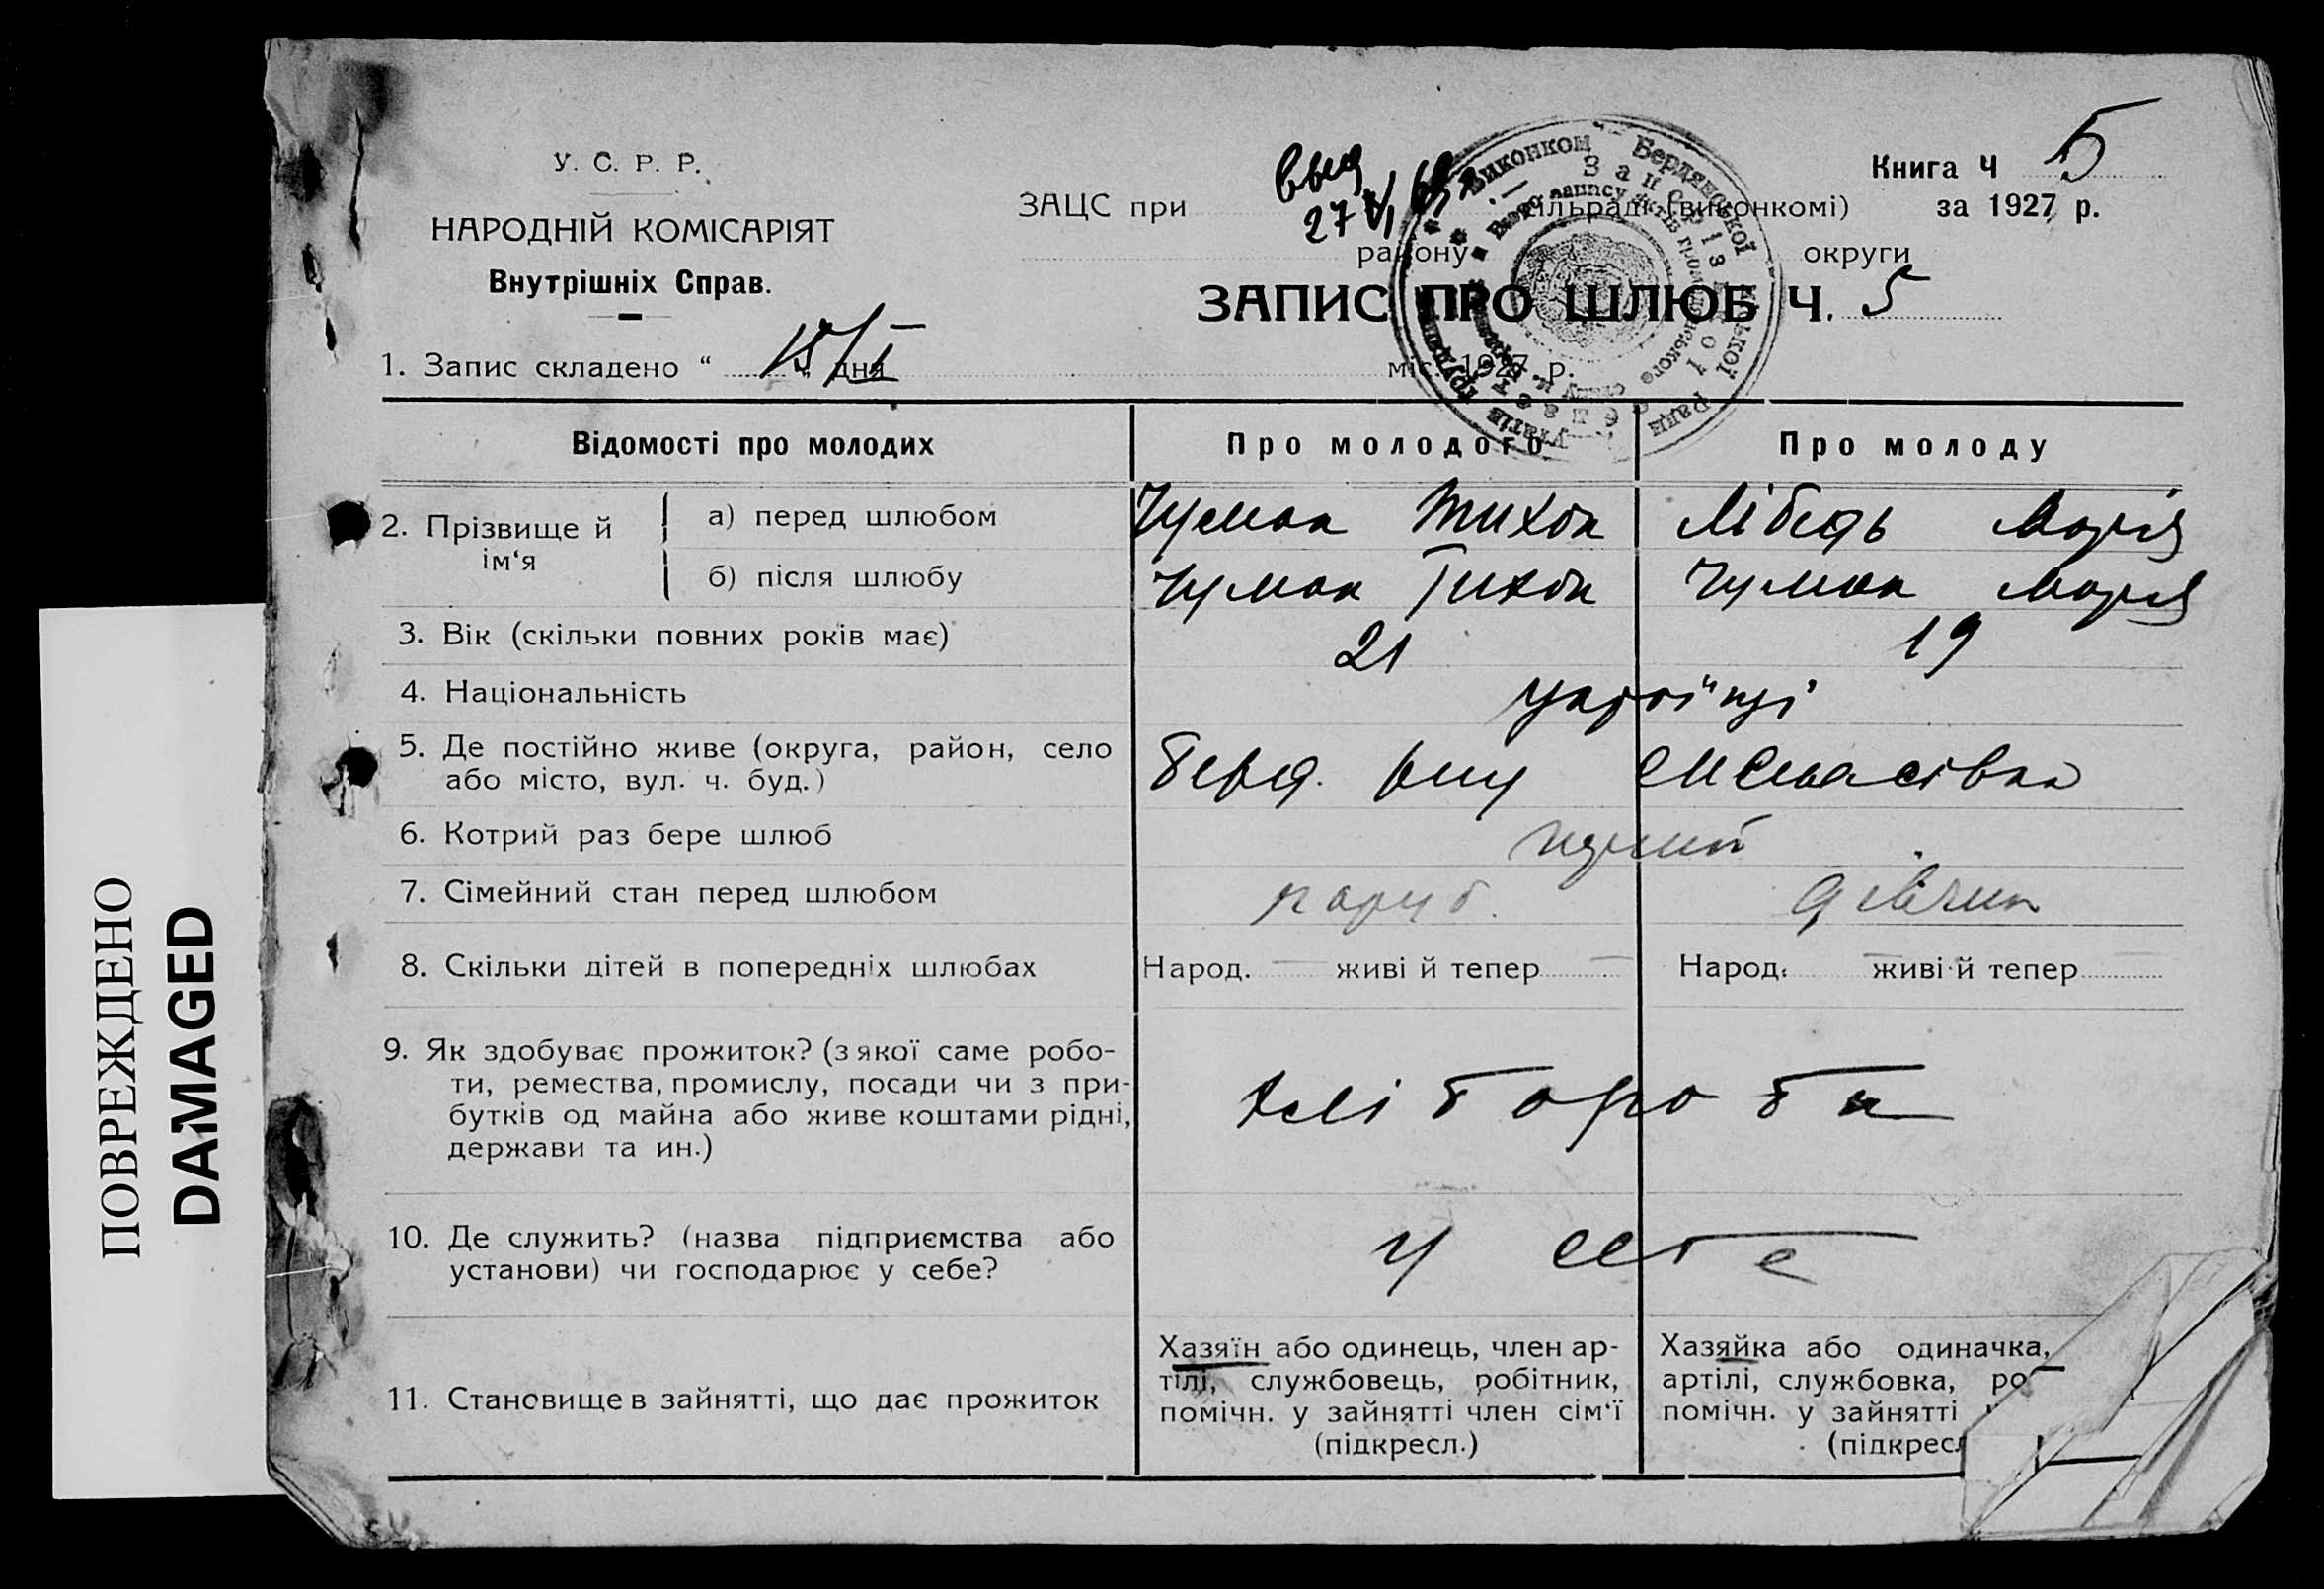 У. С. Р. Р.
НАРОДНІЙ КОМІСАРІЯТ
Внутрішніх Справ.
ПОВРЕЖДЕНО
DAMAGED
Книга Ч 5
за 1927 р.
ЗАЦС при сільраді (виконкомі)
27
району округи
ЗАПИС ПРО ШЛЮБ Ч. 5
1. Запис складено “ 15/I „ дня міс. 1927 р.
Виконком Бердянської Ради
Відомості про молодих Про молодого Про молоду
2. Прізвище й ім‘я
а) перед шлюбом Чумак Тихон Лібедь Марія
б) після шлюбу Чумак Тихон Чумак Марія
3. Вік (скільки повних років має) 21 19
4. Національність українці
5. Де постійно живе (округа, район, село
або місто, вул. ч. буд.) Берд.
6. Котрий раз бере шлюб
7. Сімейний стан перед шлюбом паруб. дівчин
8. Скільки дітей в попередніх шлюбах Народ. — живі й тепер — Народ. — живі й тепер —
9. Як здобуває прожиток? (з якої саме робо-
ти, ремества, промислу, посади чи з при-
бутків од майна або живе коштами рідні,
держави та ин.)
хліборобн
10. Де служить? (назва підприємства або
установи) чи господарює у себе?
у себе
11. Становище в зайнятті, що дає прожиток
Хазяїн або одинець, член ар-
тілі, службовець, робітник,
помічн. у зайнятті член сім‘ї
(підкресл.)
Хазяйка або одиначка,
артілі, службовка, ро
помічн. у зайнятті
(підкресл